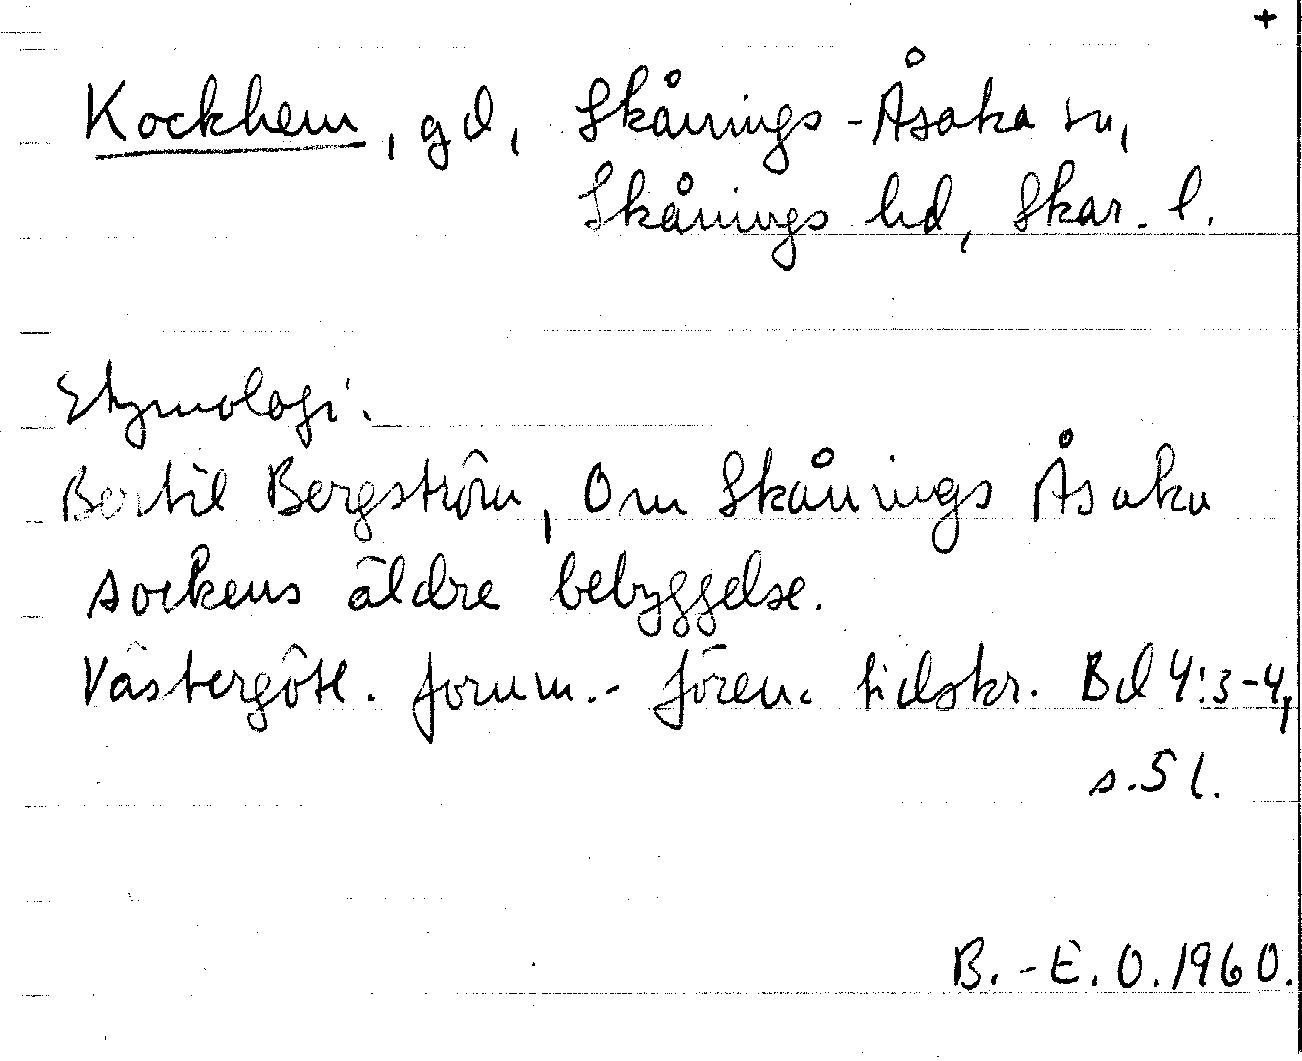 +
Kockhem, gd, Skånings-Åsaka sn,
Skånings hd, Skar. l.
Etymologi.
Bertil Bergström, Om Skånings Åsaka
sockens äldre bebyggelse.
Västergötl. fornm.- fören. tidskr. Bd 4:3-4,
s.51.
B.-E.O.1960.